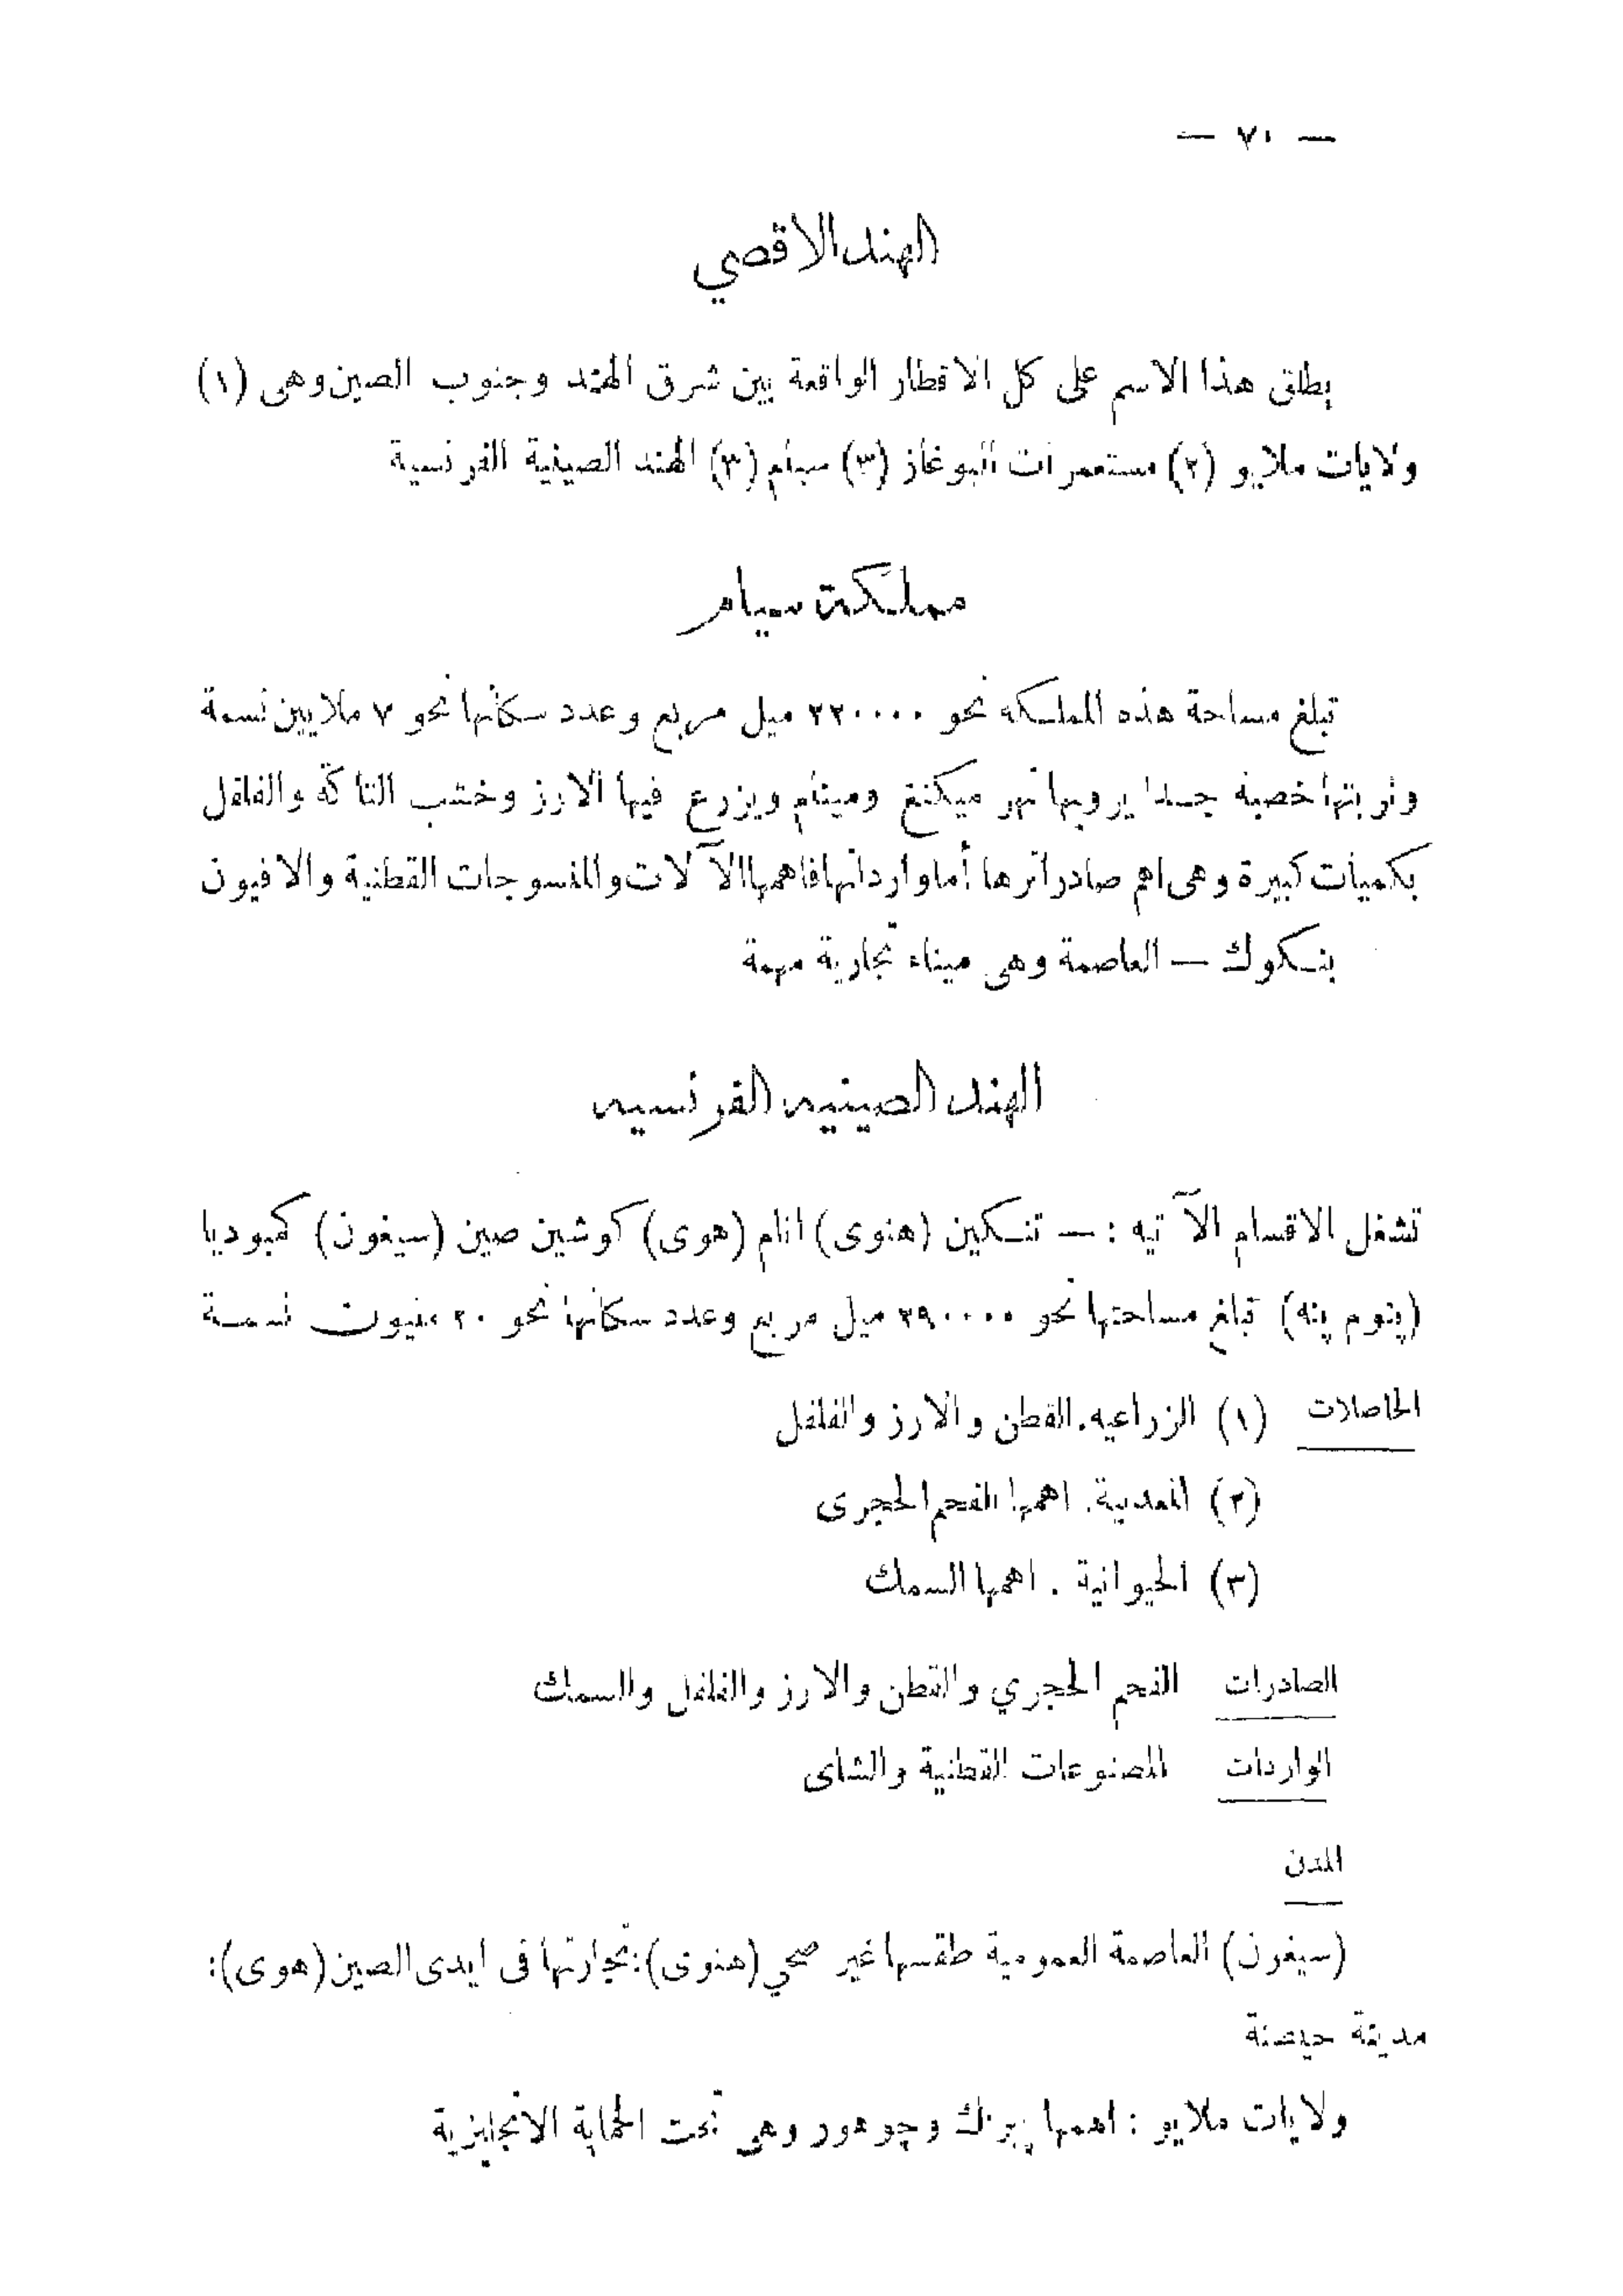 — ٧٠ —
الهند الاقصي
يطلق هذا الاسم على كل الاقطار الواقعة بين شرق الهند وجنوب الصين وهى (١)
ولايات ملايو (٢) مستعمرات البوغاز (٣) سيام (٣) الهند الصينية الفرنسية
مملكة سيام
تبلغ مساحة هذه المملكه نحو ٢٢٠٠٠٠ ميل مربع وعدد سكانها نحو ٧ ملايين نسمة
وتربتها خصبة جدا يرويها نهر ميكنغ ومينام ويزرع فيها الارز وخشب التاكه والفلفل
بكميات كبيرة وهى اهم صادراتها أما وارداتها فاهمها الآلات والمنسوجات القطنية والافيون
بنكوك — العاصمة وهى ميناء تجارية مهمة
الهند الصينيه الفرنسيه
تشغل الاقسام الآتيه : — تنكين (هنوى) انام (هوى) كوشين صين (سيغون) كمبوديا
(پنوم پنه) تبلغ مساحتها نحو ٢٩٠٠٠٠ ميل مربع وعدد سكانها نحو ٢٠ مليون نسمة
الحاصلات (١) الزراعيه. القطن والارز والفلفل
(٢) المعدنية. اهمها الفحم الحجرى
(٣) الحيوانية . اهمها السمك
الصادرات الفحم الحجري والقطن والارز والفلفل والسمك
الواردات المصنوعات القطنية والشاى
المدن
(سيغون) العاصمة العمومية طقسها غير صحي (هنوى): تجارتها فى ايدى الصين (هوى):
مدينة حيصنة
ولايات ملايو : اهمها پيرك وچوهور وهى تحت الحماية الانجليزية